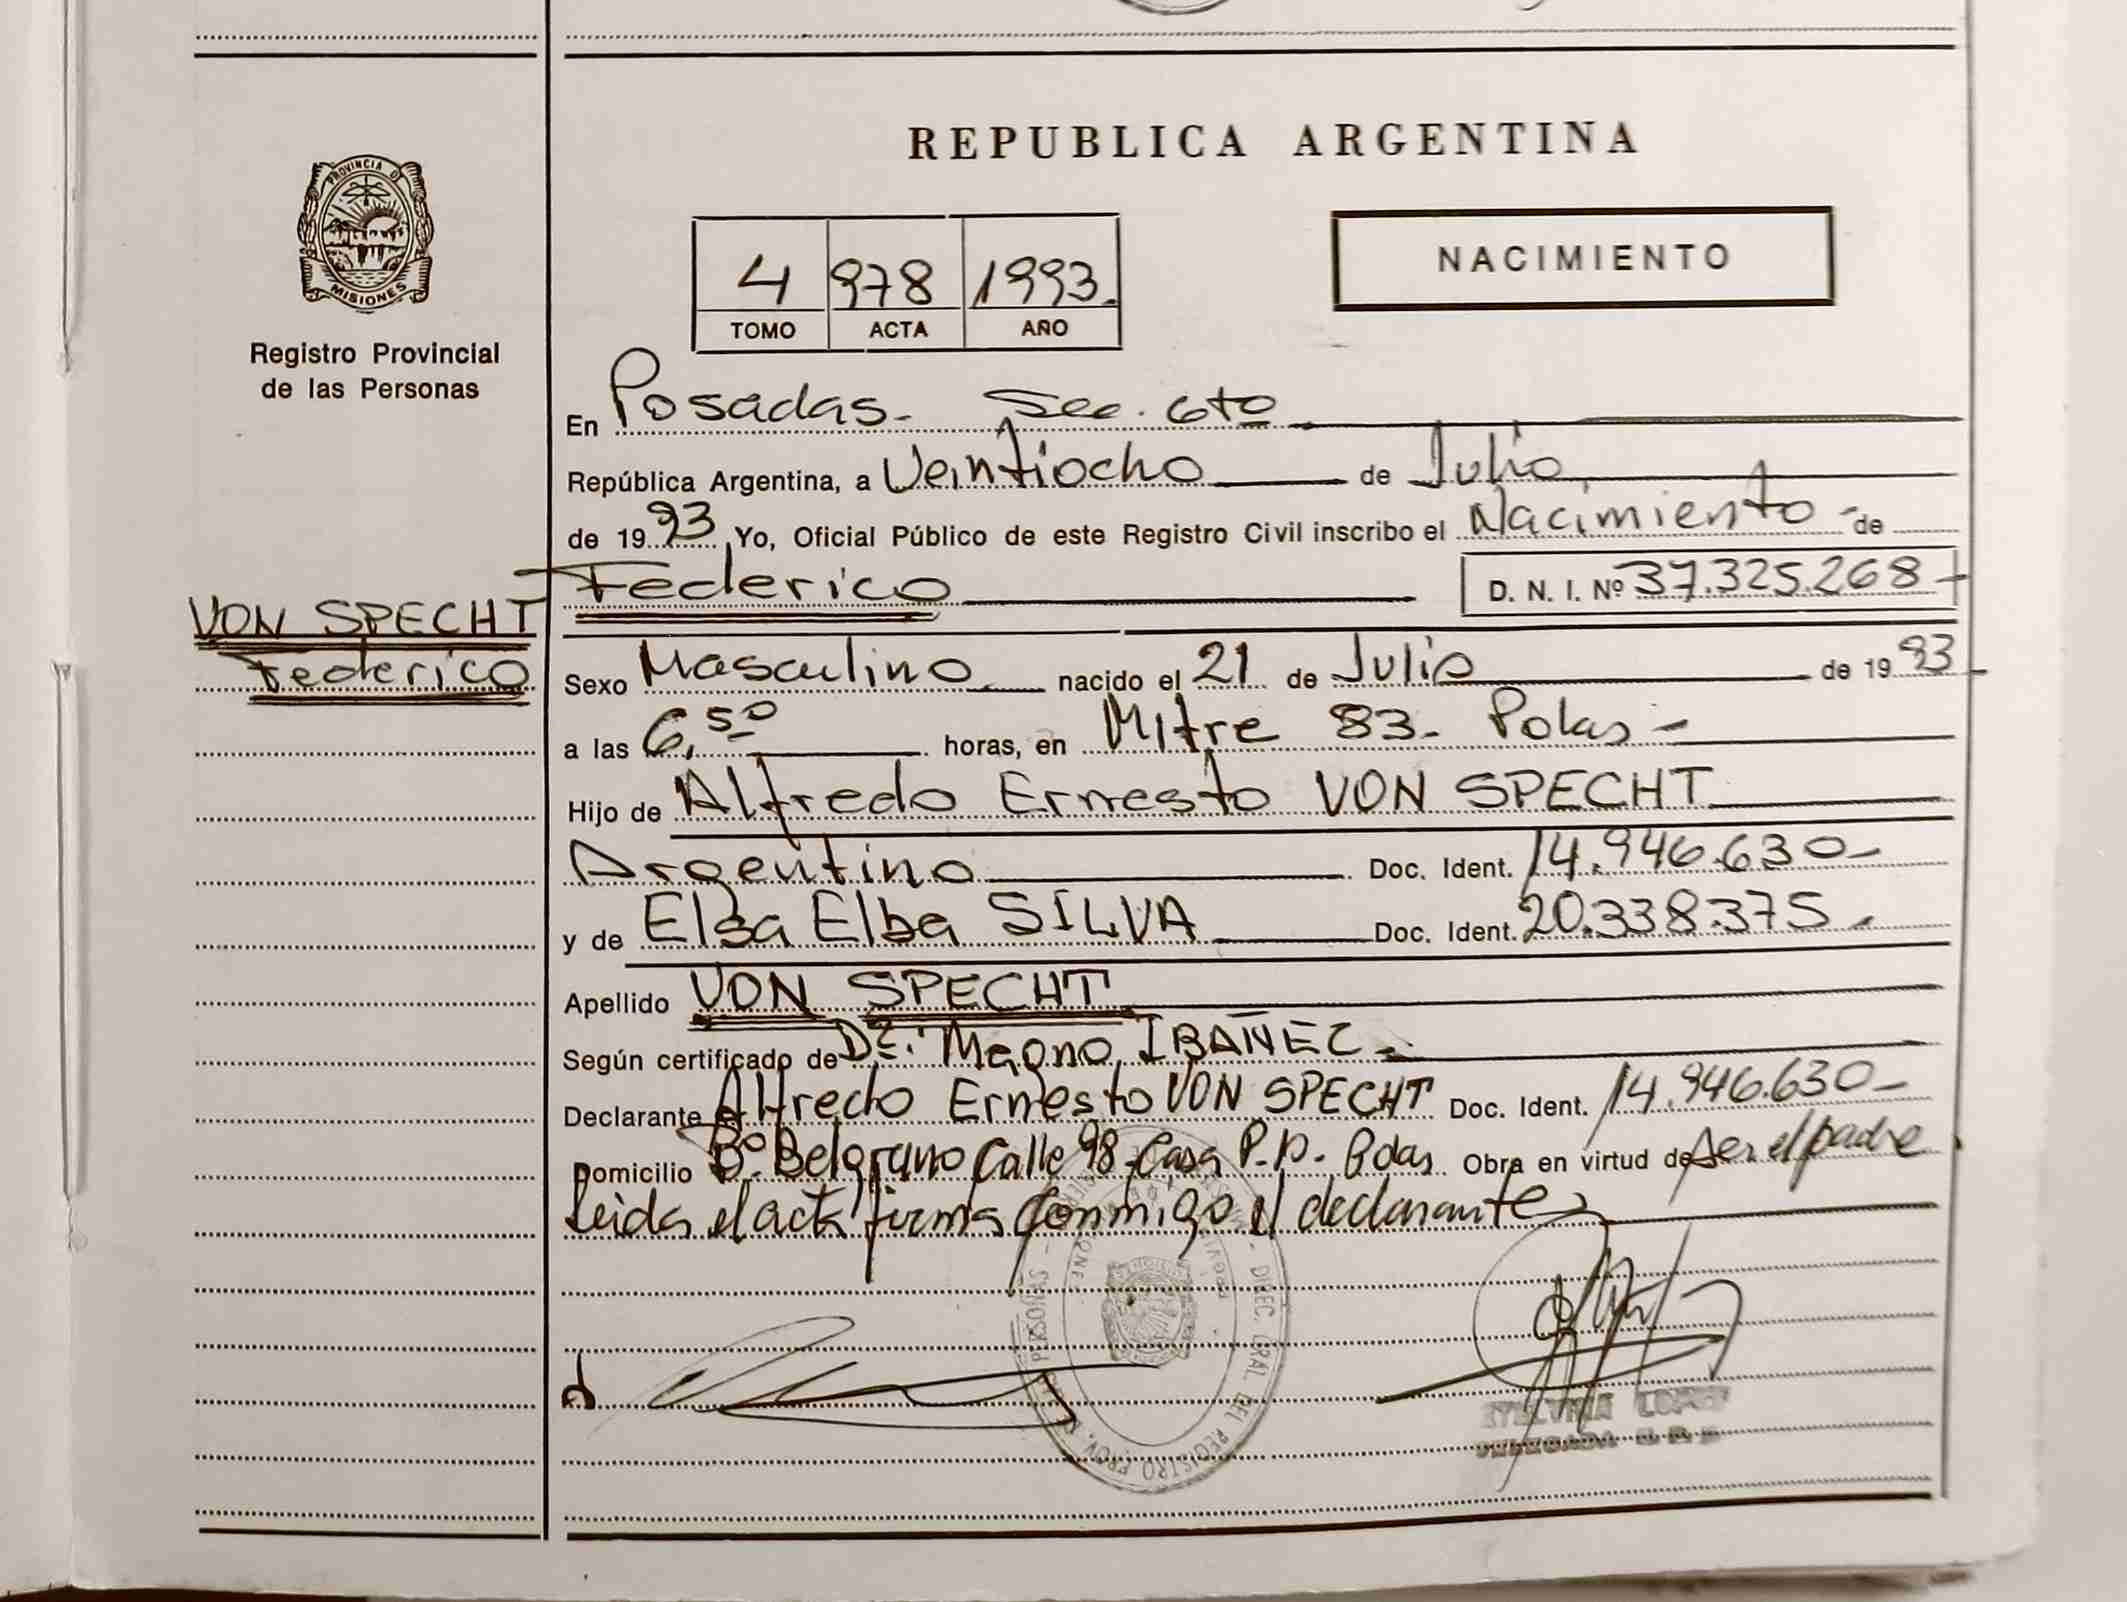 PROVINCIA D
MISIONES
Registro Provincial
de las Personas
VON SPECHT
Federico
REPUBLICA ARGENTINA
4 978 1993.
TOMO ACTA AÑO
NACIMIENTO
En Posadas. Sec. 6to
República Argentina, a Veintiocho de Julio
de 1993 Yo, Oficial Público de este Registro Civil inscribo el Nacimiento - de
Federico D. N. I. Nº 37.325.268-
Sexo Masculino nacido el 21 de Julio de 1993
a las 6,50 horas, en Mitre 83- Pdas-
Hijo de Alfredo Ernesto VON SPECHT
Argentino Doc. Ident. 14.946.630-
y de Elsa Elba SILVA Doc. Ident. 20.338.375.
Apellido VON SPECHT
Según certificado de Dr. Magno IBAÑEZ-
Declarante Alfredo Ernesto VON SPECHT Doc. Ident. 14.946.630-
Domicilio Bº. Belgrano Calle 98- Casa P.D.- Pdas. Obra en virtud de ser el padre
Leida el acta firma conmigo el declarante
DIREC. GRAL DEL REGISTRO PROV. PERSONAS -
LOPEZ
DELEGADA